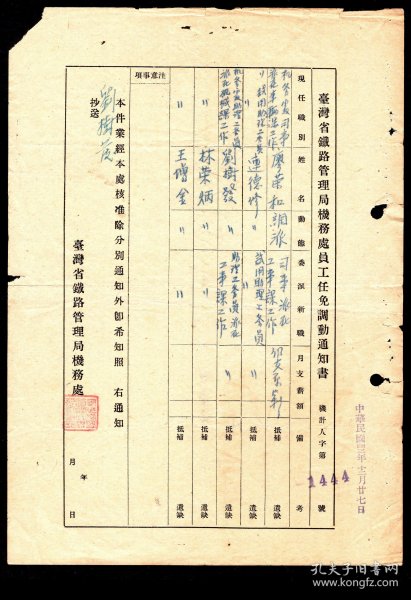 臺灣省鐵路管理局機務處員工任免調動通知書
機計人字第 1444 號
中華民國 年 月廿七日
現任職別
姓名
動態
委派新職
月支薪額
備考
機務段司事派在車輛課工作
廖榮和
調派
司事派在工事課工作
仍支原薪
抵補 遺缺
〃 試用助理工務員
連德修
〃
試用助理工務員
〃
抵補 遺缺
機務段助理工務員派在機械課工作
劉樹發
〃
助理工務員派在工事課工作
〃
抵補 遺缺
〃
林荣炳
〃
〃
抵補 遺缺
〃
王增金
〃
〃
抵補 遺缺
注意事項
本件業經本處核准除分別通知外卽希知照 右通知
劉樹發
抄送
臺灣省鐵路管理局機務處
年 月 日
孔夫子旧书网
www.kongfz.com